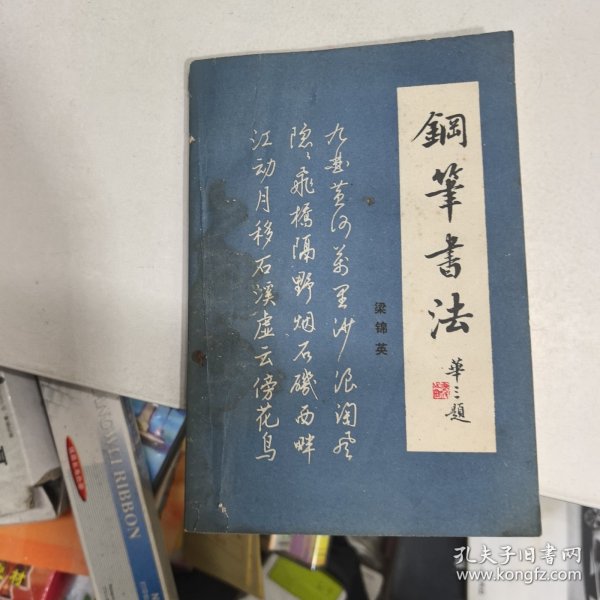 鋼筆书法
華三題
梁锦英
九曲黄河萬里沙浪淘风
隐〻飛橋隔野烟石磯西畔
江动月移石溪虚云傍花鸟
NGWEI RIBBON
孔夫子旧书网
www.kongfz.com